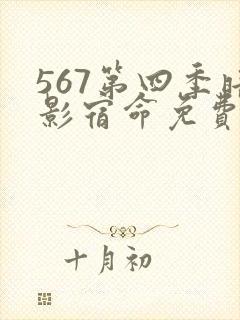 567第四季
影宿命免費
十月初